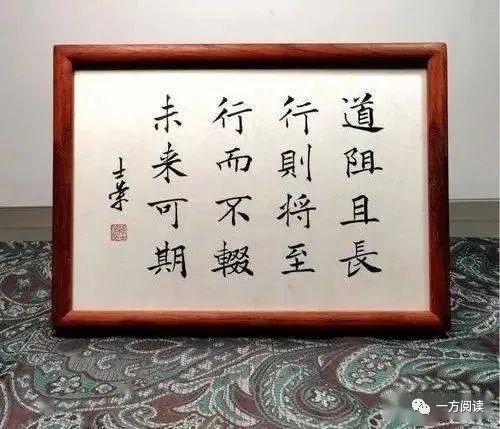 道阻且長
行則将至
行而不輟
未来可期
一方阅读